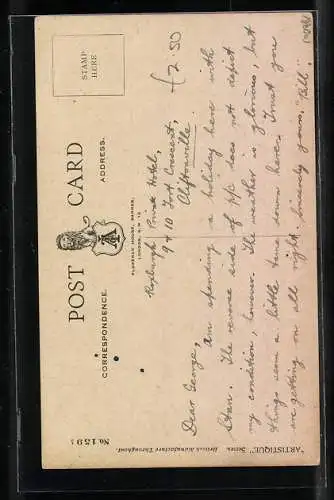 POST CARD
CORRESPONDENCE.
ADDRESS.
STAMP
HERE
FLORENCE HOUSE, BARNES,
LONDON, S.W. 13
A
Roxburgh Private Hotel,
9 & 10 Fort Crescent,
Cliftonville.
£2.50
Dear George,
Am spending a holiday here with
Stan. The reverse side of P/C does not depict
my condition, however. The weather is glorious, but
things seem a little tame down here. Trust you
are getting on all right. Sincerely yours, "Bill".
No. 1591
"ARTISTIQUE" Series. British Manufacture Throughout.